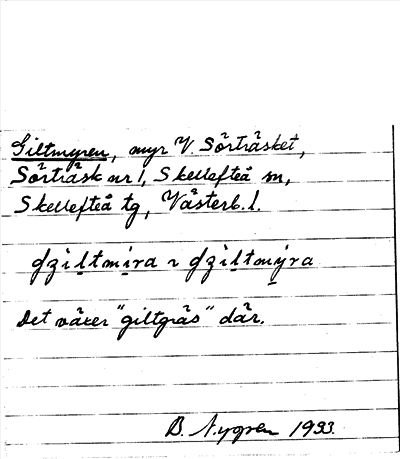 Giltmyren, myr V. Sörträsket,
Sörträsk nr 1, Skellefteå sn,
Skellefteå tg, Västerb. l.
Det växer "giltgräs" där.
B. Nygren 1933.